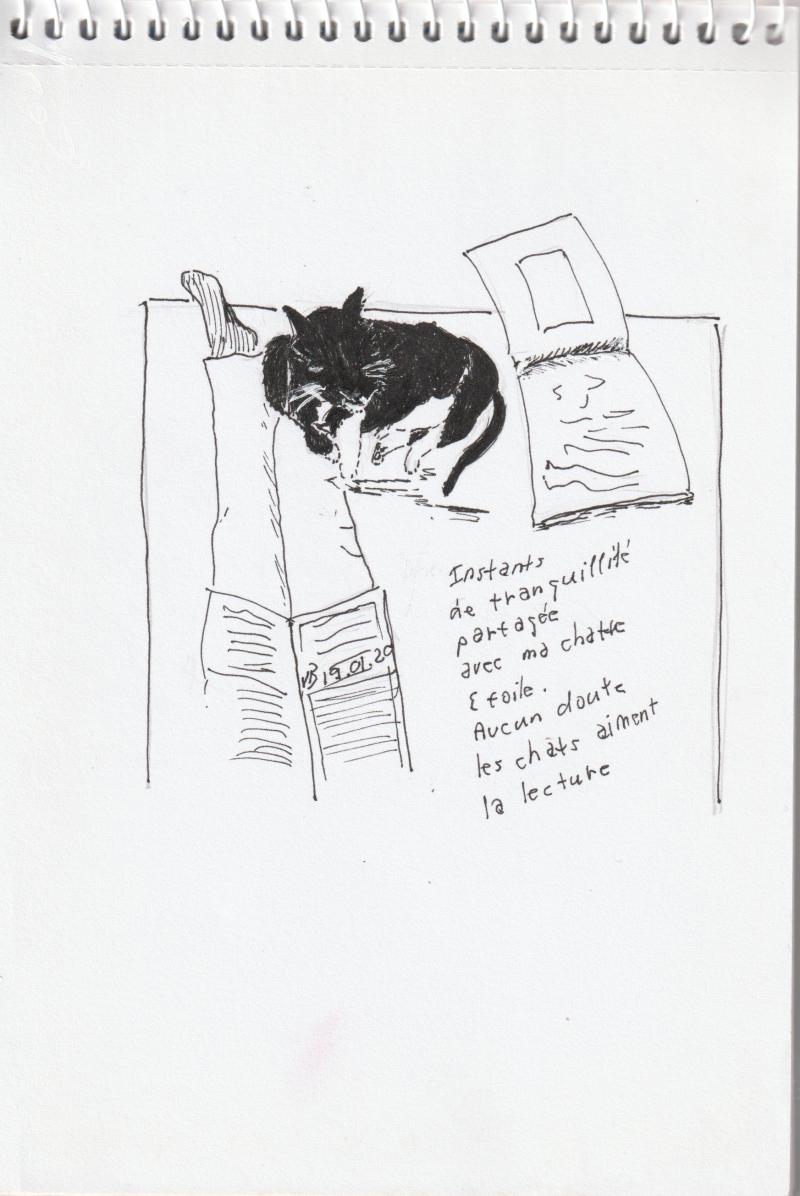 VB 19.01.20
Instants
de tranquillité
partagée
avec ma chatte
Etoile.
Aucun doute
les chats aiment
la lecture